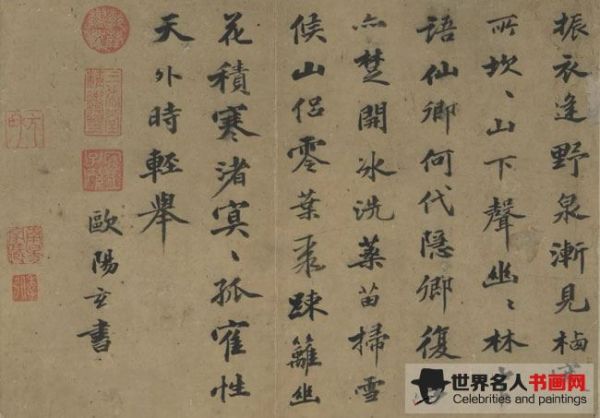 振衣逢野泉漸見栖
所坎〻山下聲幽〻林
語仙卿何代隱卿復
亦楚開氷洗藥苗掃雪
候山侣零葉聚踈籬幽
花積寒渚冥〻孤寉性
天外時輕舉
歐陽玄書
世界名人书画网
Celebrities and paintings